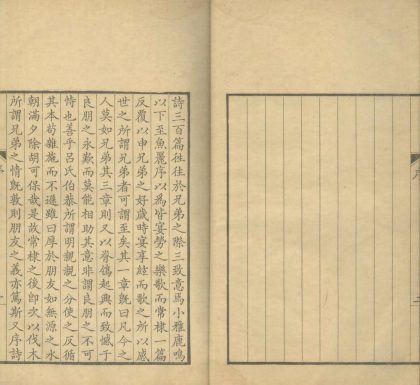 詩三百篇往往於兄弟之際三致意焉小雅鹿鳴
以下至魚麗序以為皆宴勞之樂歌而常棣一篇
反覆以申兄弟之好歲時宴享絃而歌之所以感
世之所謂兄弟者可謂至矣其一章既曰凡今之
人莫如兄弟其三章則又以脊鴒起興而致憾于
良朋之永歎而莫能相助其意非謂良朋之不可
恃也善乎呂氏伯恭所謂明親親之分使之反循
其本苟雜施而不遜雖曰厚於朋友如無源之水
朝滿夕除胡可保哉是故常棣之後即次以伐木
所謂兄弟之情既敦則朋友之義亦篤斯又序詩